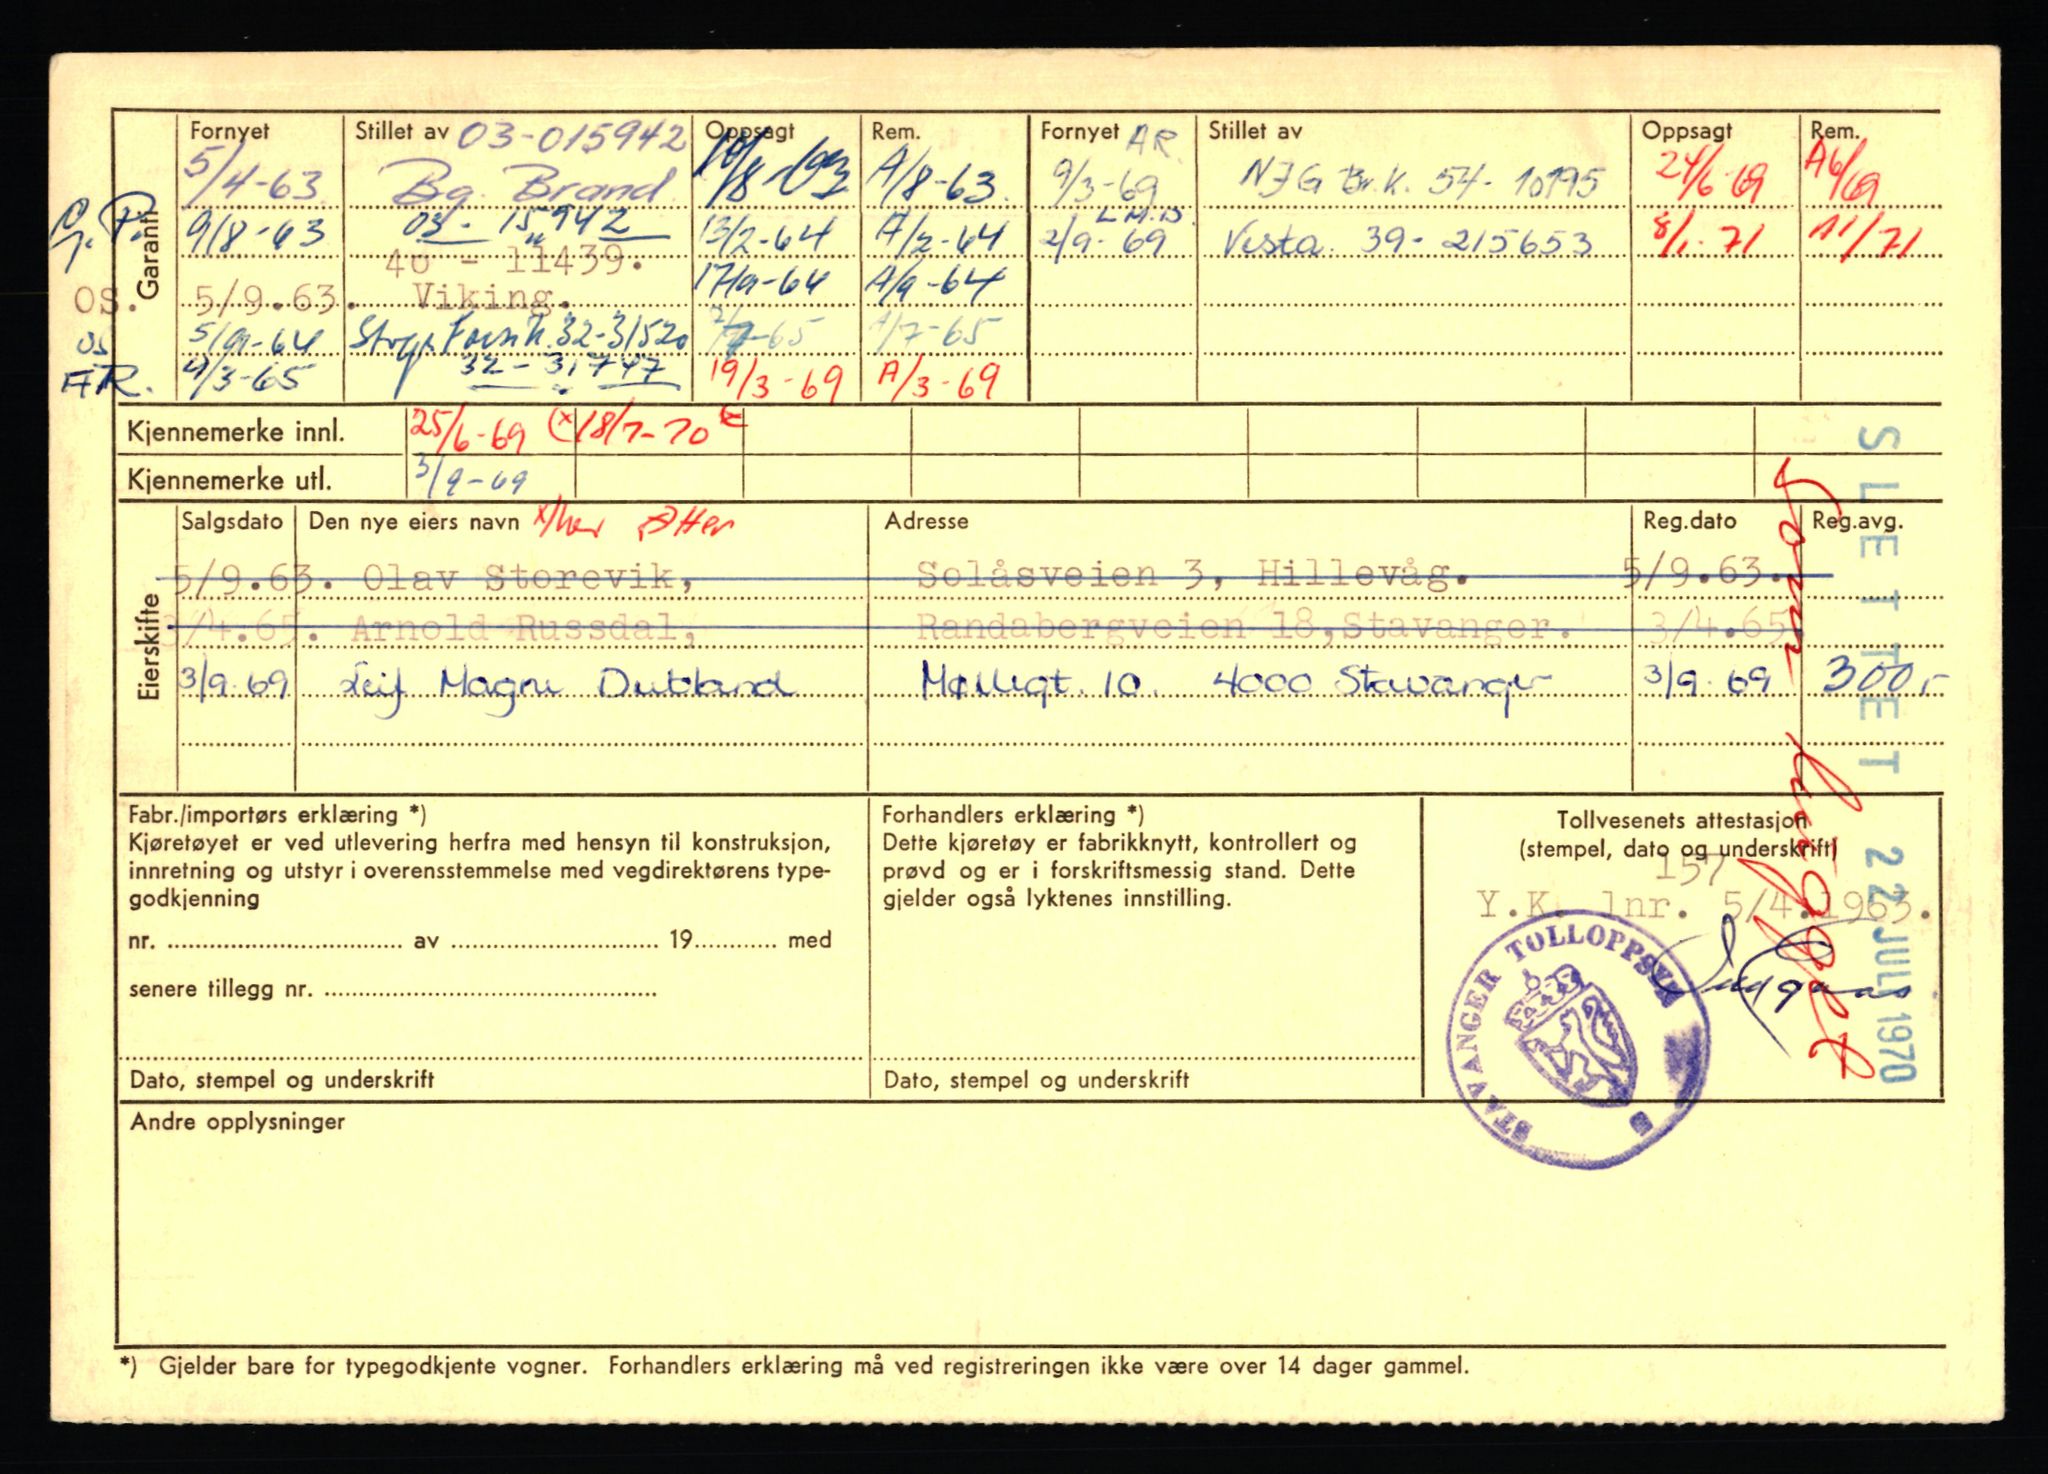 Garanti
Fornyet Stillet av 03-015942 Oppsagt Rem. Fornyet AR. Stillet av Oppsagt Rem.
5/4-63 Bg. Brand A/8-63. 9/3-69 54-10195 24/6-69 A6/69
9/8-63 03-15942 13/2-64 A/2-64 L.M.D. 2/9-69 Vesta 39-215653 8/1-71 A1/71
40 - 11439.
OS. 5/9.63. Viking. 17/9-64 A/9-64
OS 5/9-64 32-31520 A/7-65
AR. 4/3-65 32-31747 19/3-69 A/3-69
Kjennemerke innl. 25/6-69 (x 18/7-70
Kjennemerke utl. 3/9-69
Eierskifte
Salgsdato Den nye eiers navn Adresse Reg.dato Reg.avg.
5/9.63. Olav Storevik, Solåsveien 3, Hillevåg. 5/9.63.
3/4.65. Arnold Russdal, Randabergveien 18,Stavanger. 3/4.65.
3/9.69 Leif Magne Dubland Møllegt. 10. 4000 Stavanger 3/9-69 300,-
SLETTET 22 JULI 1970
Fabr./importørs erklæring *)
Kjøretøyet er ved utlevering herfra med hensyn til konstruksjon,
innretning og utstyr i overensstemmelse med vegdirektørens type-
godkjenning
nr. ........ av ........ 19........ med
senere tillegg nr. ........
Dato, stempel og underskrift
Forhandlers erklæring *)
Dette kjøretøy er fabrikknytt, kontrollert og
prøvd og er i forskriftsmessig stand. Dette
gjelder også lyktenes innstilling.
Dato, stempel og underskrift
Tollvesenets attestasjon
(stempel, dato og underskrift)
157
Y.K. lnr. 5/4.1963.
STAVANGER TOLLOPPSYN
Andre opplysninger
*) Gjelder bare for typegodkjente vogner. Forhandlers erklæring må ved registreringen ikke være over 14 dager gammel.